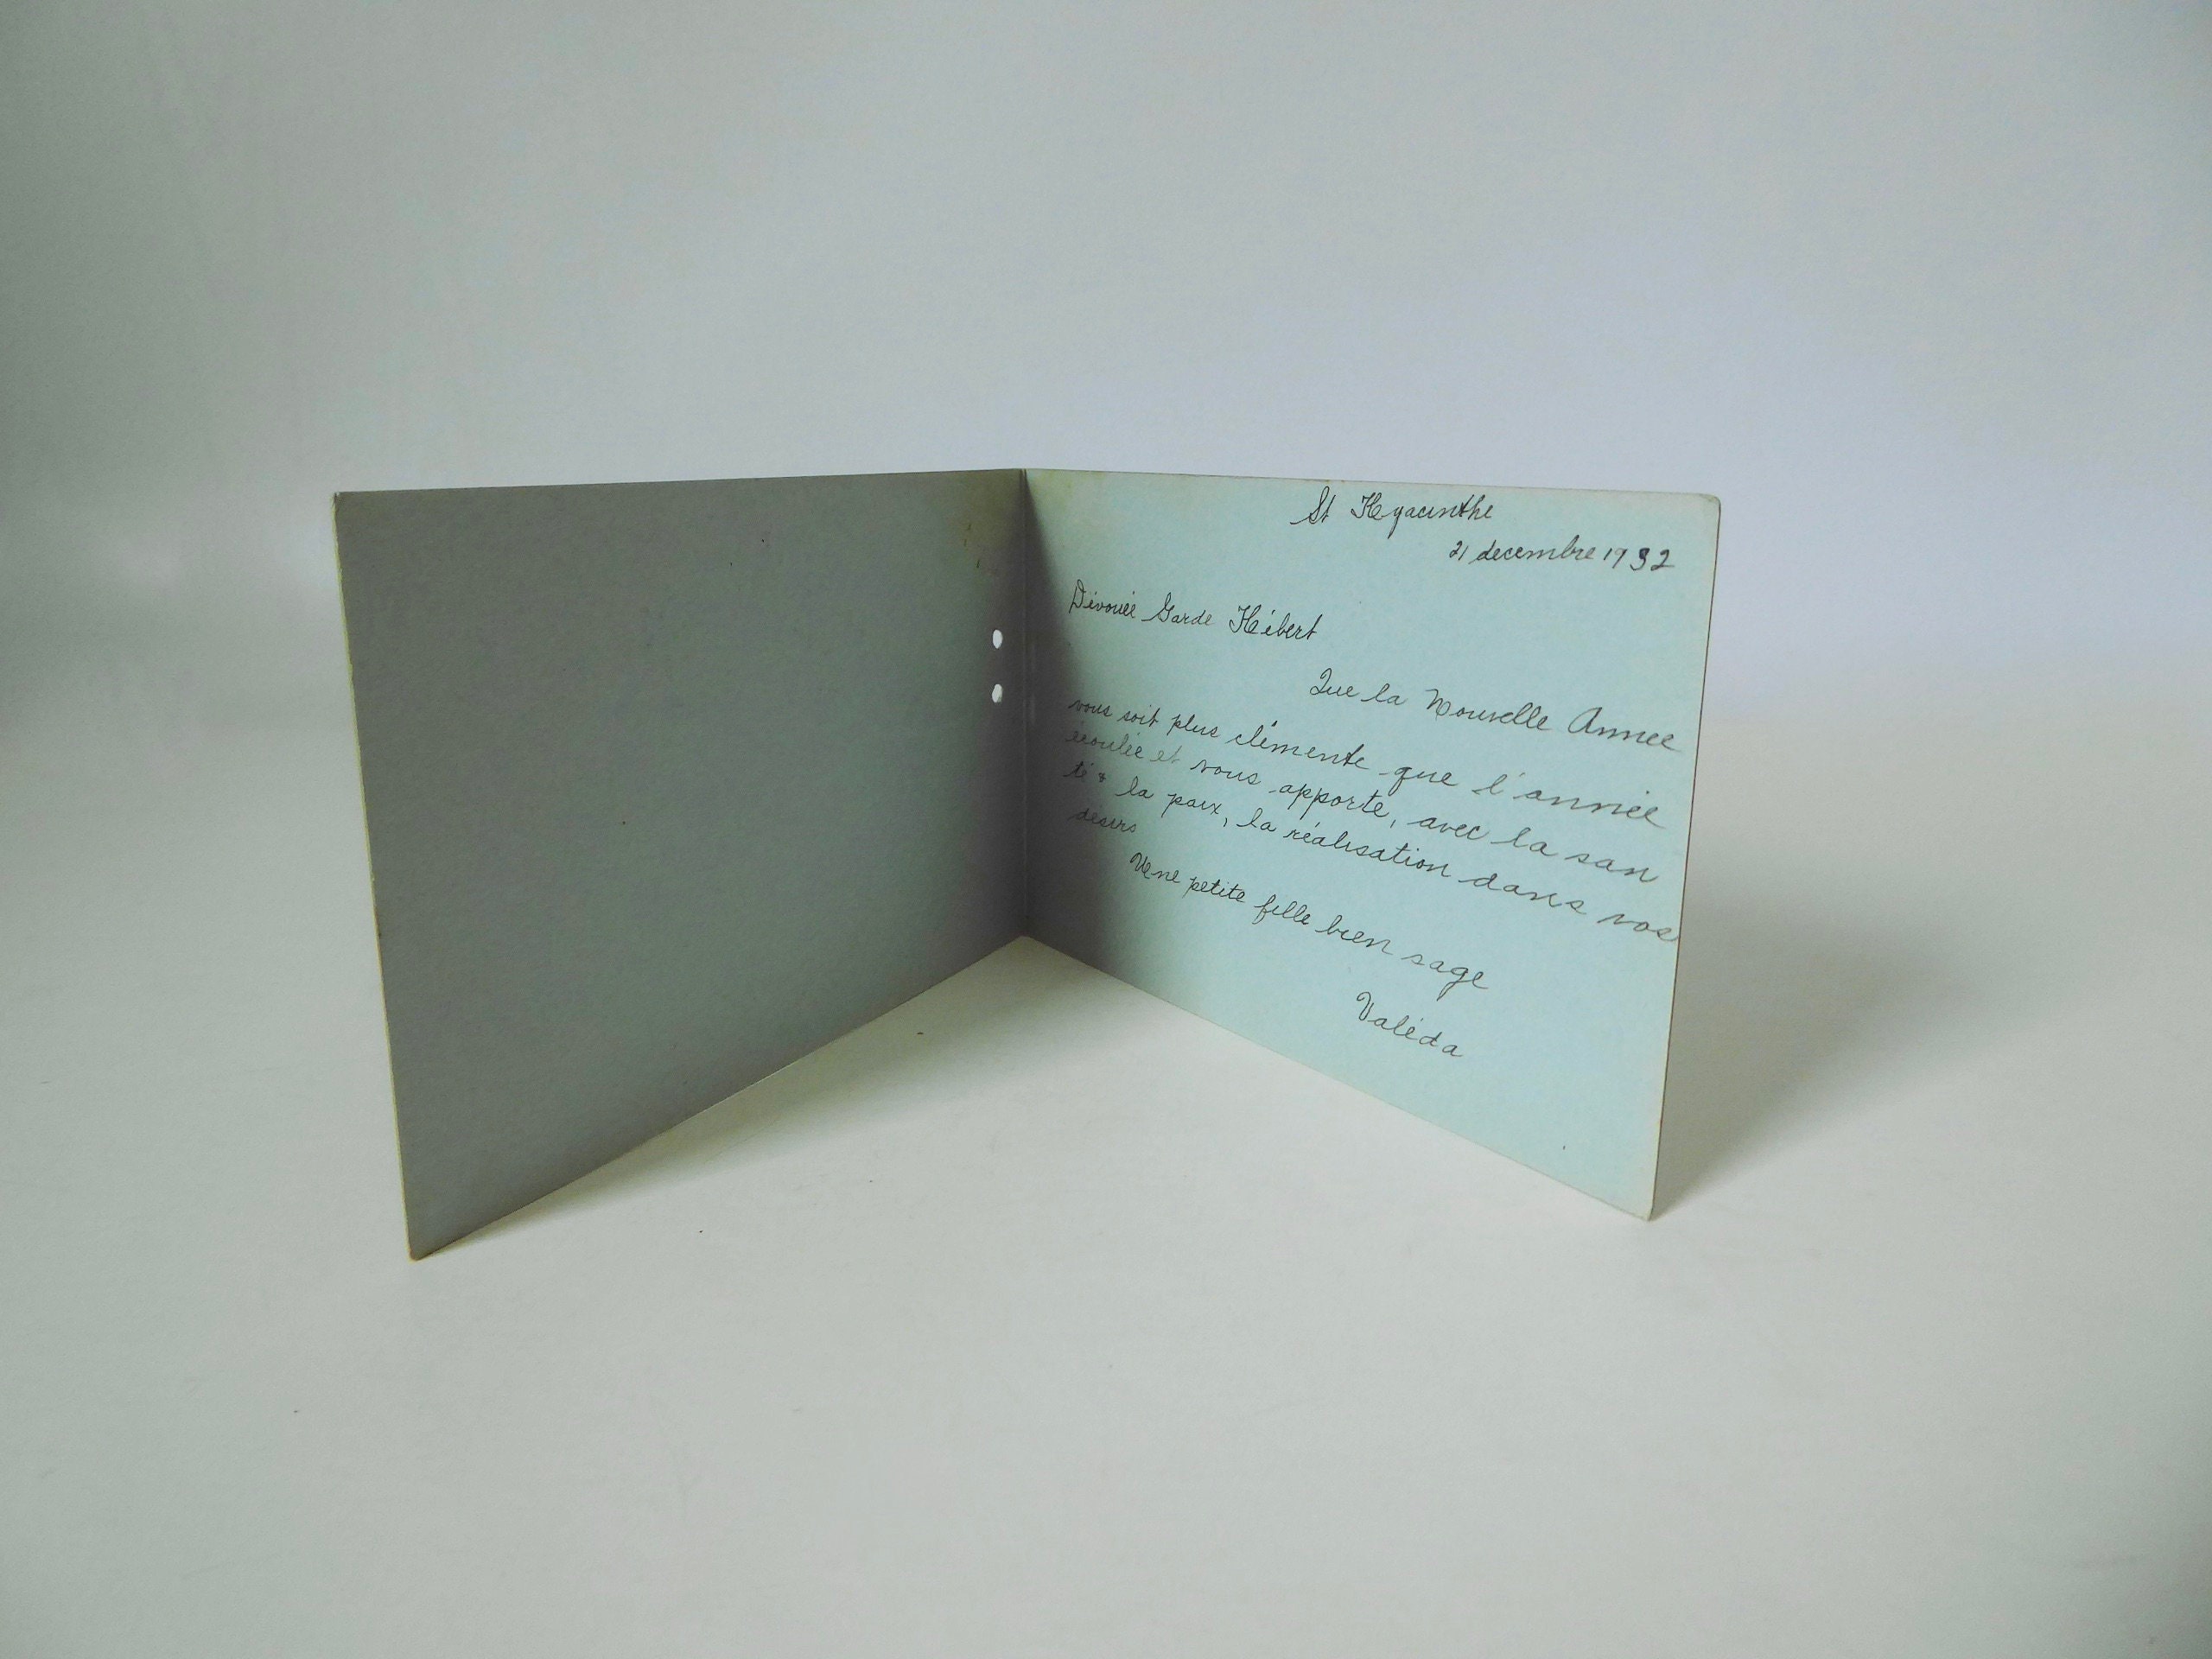 St Hyacinthe
21 decembre 1932
Dévouée Garde Hébert
Que la Nouvelle Année
vous soit plus clémente que l'année
écoulée et vous apporte, avec la san
té & la paix, la réalisation dans vos
désirs
Une petite fille bien sage
Valéda